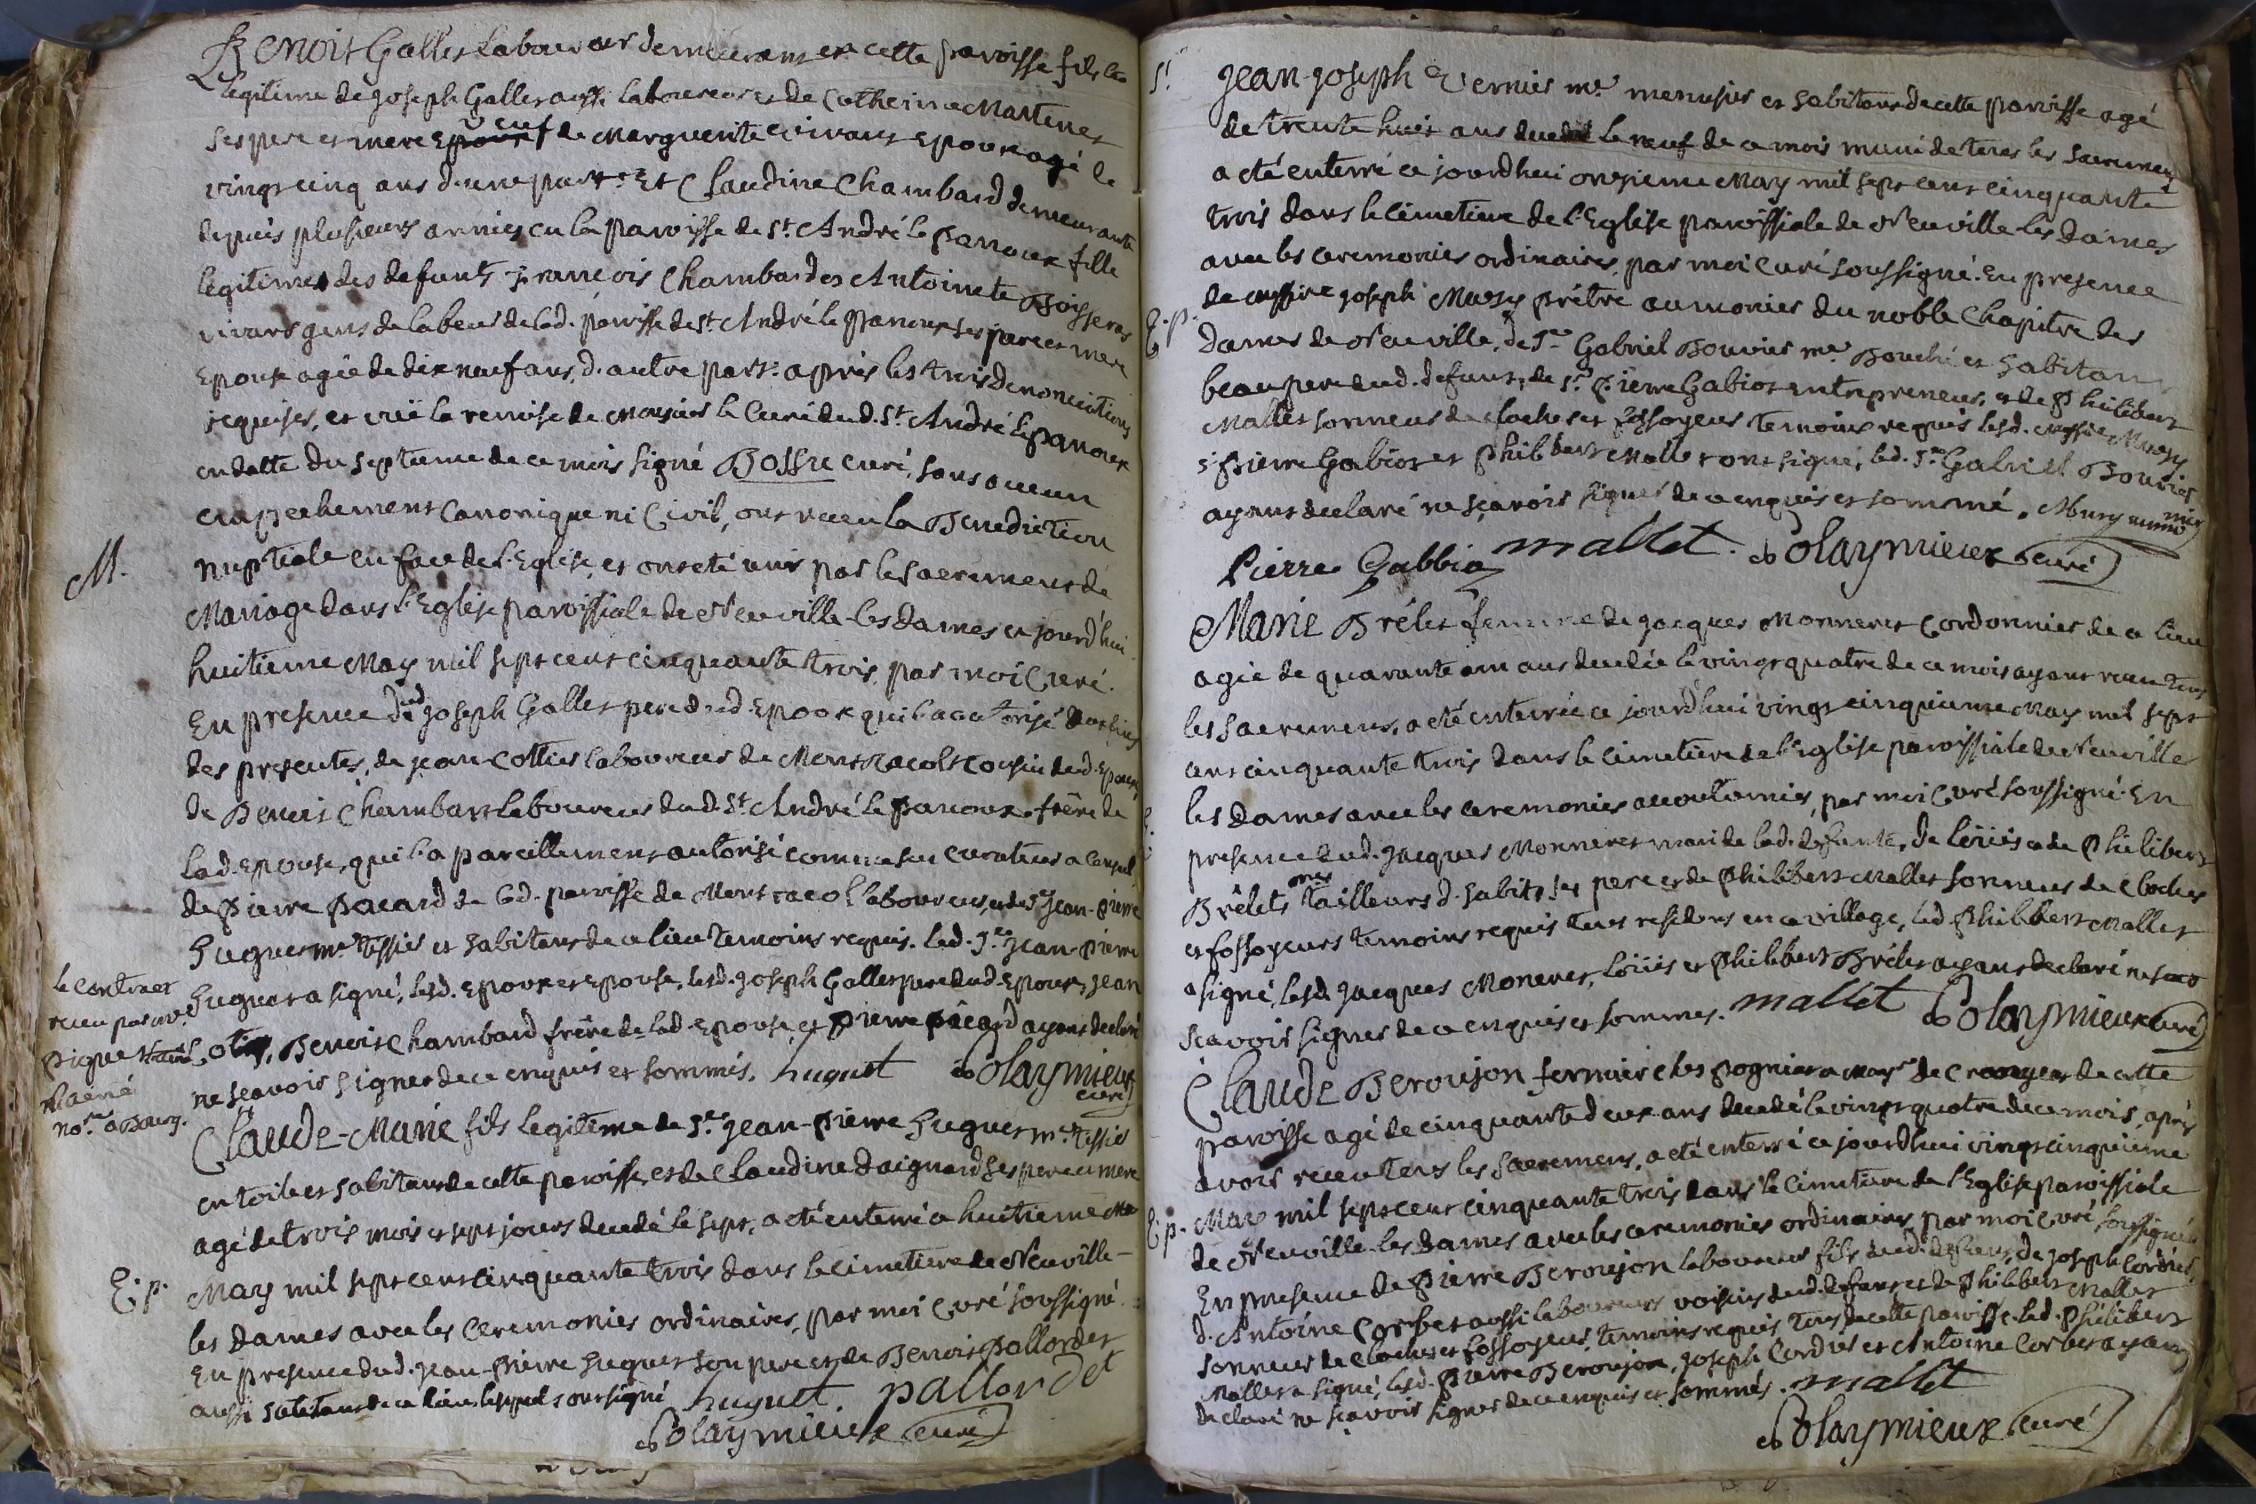 Benoit Gallet Laboureur demeurant en cette paroisse fils
legitime de Joseph Gallet aussi laboureur et de Catherine Martinet
ses pere et mere veuf de Marguerite vivant Epoux agé de
vingt cinq ans d'une part et Claudine Chambard demeurante
depuis plusieurs années en la paroisse de St. André le panoux fille
legitime des defunts François Chambard et Antoinete Boisseras
vivans gens de labeur de lad. paroisse de St. André le Panoux ses pere et mere
Epouse agée de dix neuf ans d'autre part. après les trois denonciations
requises, et vüe la remise de Monsieur le Curé dud. St. André le panoux
en datte du septieme de ce mois signé Bossu curé, sans aucun
empechement Canonique ni Civil, ont receu la Benediction
nuptiale en face de l'Eglise, et ont eté unis par le sacrement de
M.
Mariage dans l'Eglise paroissiale de Neuville-les Dames ce jourd'hui
huitieme May mil sept cent cinquante trois, par moi Curé.
En presence dud. Joseph Gallet pere dud. Epoux qui l'a autorisé
des presentes, de Jean Cottier laboureur de Montracol Cousin dud. Epoux,
de Benoit Chambart laboureur dud. St. André le panoux frère de
lad. Epouse, qui l'a pareillement autorisé comme son curateur
de Pierre Pacard de lad. paroisse de Montracol laboureur, et de Sr. Jean-Pierre
Huguet me. tissier et habitant de ce lieu temoins requis. led. Sr. Jean-Pierre
Huguet a signé, lesd. Epoux et Epouse, lesd. Joseph Gallet pere dud. Epoux, Jean
Benoit Chambard frère de lad. Epouse, et Pierre Pacard ayant declaré
ne scavoir signer de ce enquis et sommés. huguet Dolaymieux
curé
le contract
receu par me.
no.re a Bourg.
Claude-Marie fils legitime de Sr. Jean-Pierre Huguet me. tissier
en toile et habitant de cette paroisse, et de Claudine Daignard ses pere et mere
agé de trois mois et sept jours decedé le sept, a eté enterré ce huitieme
E. p.
May mil sept cent cinquante trois dans le cimetiere de Neuville-
les Dames avec les Ceremonies ordinaires, par moi Curé soussigné.
En presence dud. Jean-Pierre Huguet son pere et de Benoit Pallordet
aussi habitans de ce lieu, lesquels ont signé huguet. pallordet
Dolaymieux curé
Jean-Joseph Vernier me. menusier et habitant de cette paroisse agé
de trente huit ans decedé le neuf de ce mois muni de tous les sacremens
a eté enterré ce jourdhui onzieme May mil sept cent cinquante
trois dans le cimetiere de l'Eglise paroissiale de Neuville-les Dames
avec les ceremonies ordinaires, par moi Curé soussigné. En presence
de messire Joseph Mussy prêtre aumonier du noble Chapitre des
E. p.
Dames de Neuville, de Sr. Gabriel Bouvier me. Bouché et habitant
beaupere dud. defunt, de Sr. Pierre Gabiot entrepreneur, et de Philibert
Mallet sonneur de cloches et fossoyeur temoins requis lesd. messire Mussy
Sr. Pierre Gabiot et Philibert Mallet ont signé, led. Sr. Gabriel Bouvier
ayant declaré ne sçavoir signer de ce enquis et sommé. Mussy
Pierre Gabbio mallet. Dolaymieux curé
Marie Brélet femme de Jacques Monneret Cordonnier de ce lieu
agée de quarante un ans decedée le vingt quatre de ce mois ayant receu tous
les sacremens, a eté enterrée ce jourd'hui vingt cinquieme May mil sept
cent cinquante trois dans le cimetiere de l'Eglise paroissiale de Neuville
les Dames avec les ceremonies accoutumées, par moi Curé soussigné. En
presence dud. Jacques Monneret mari de lad. defunte, de Loüis et de Philibert
Brélet mes tailleurs d'habits ses pere et de Philibert Mallet sonneur de cloches
et fossoyeur temoins requis tous residens en ce village, led. Philibert Mallet
a signé, lesd. Jacques Moneret, Loüis et Philibert Brélet ayant declaré ne
scavoir signer de ce enquis et sommés. mallet Dolaymieux curé
Claude Beroujon fermier ches de cette
paroisse agé de cinquante deux ans decedé le vingt quatre de ce mois, après
avoir receu tous les sacremens, a eté enterré ce jourdhui vingt cinquieme
E. p.
May mil sept cent cinquante trois dans le cimetiere de l'Eglise paroissiale
de Neuville-les Dames avec les ceremonies ordinaires par moi Curé soussigné
En presence de Pierre Beroujon laboureur fils dud. defunt, de Joseph Cordier,
d'Antoine Corbet aussi laboureurs voisins dud. defunt, et de Philibert Mallet
sonneur de cloches et fossoyeur, temoins requis tous de cette paroisse. led. Philibert
Mallet a signé, lesd. Pierre Beroujon, Joseph Cordier et Antoine Corbet ayant
declaré ne sçavoir signer de ce enquis et sommés. mallet
Dolaymieux curé